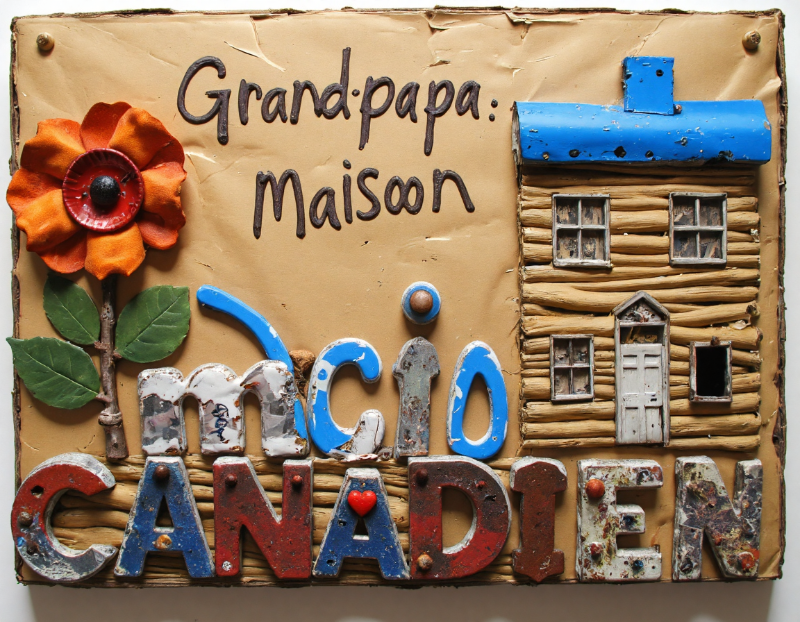 Grand·papa:
Maisoon
mcio
CANADIEN